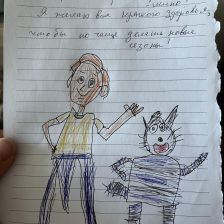 Я желаю вам крепкого здоровья,
чтобы по чаще делали новые
сезоны!